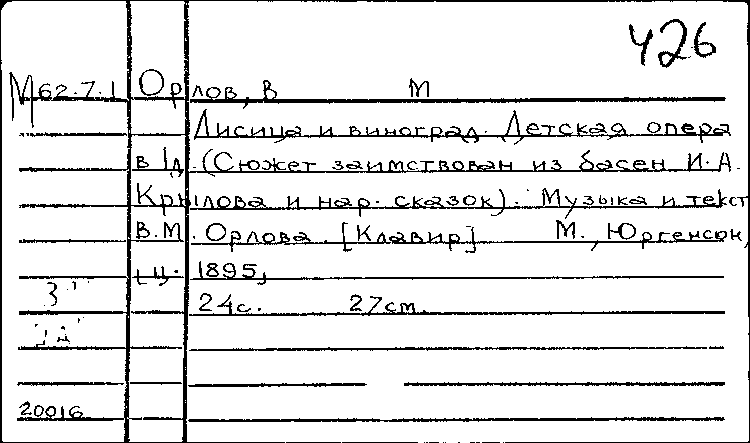 426
М62.7.1 Орлов, В М
Лисица и виноград. Детская опера
в 1д. (Сюжет заимствован из басен И.А.
Крылова и нар. сказок). Музыка и текст
В.М. Орлова. [Клавир] М., Юргенсон,
[ц. 1895]
24с. 27см.
20016